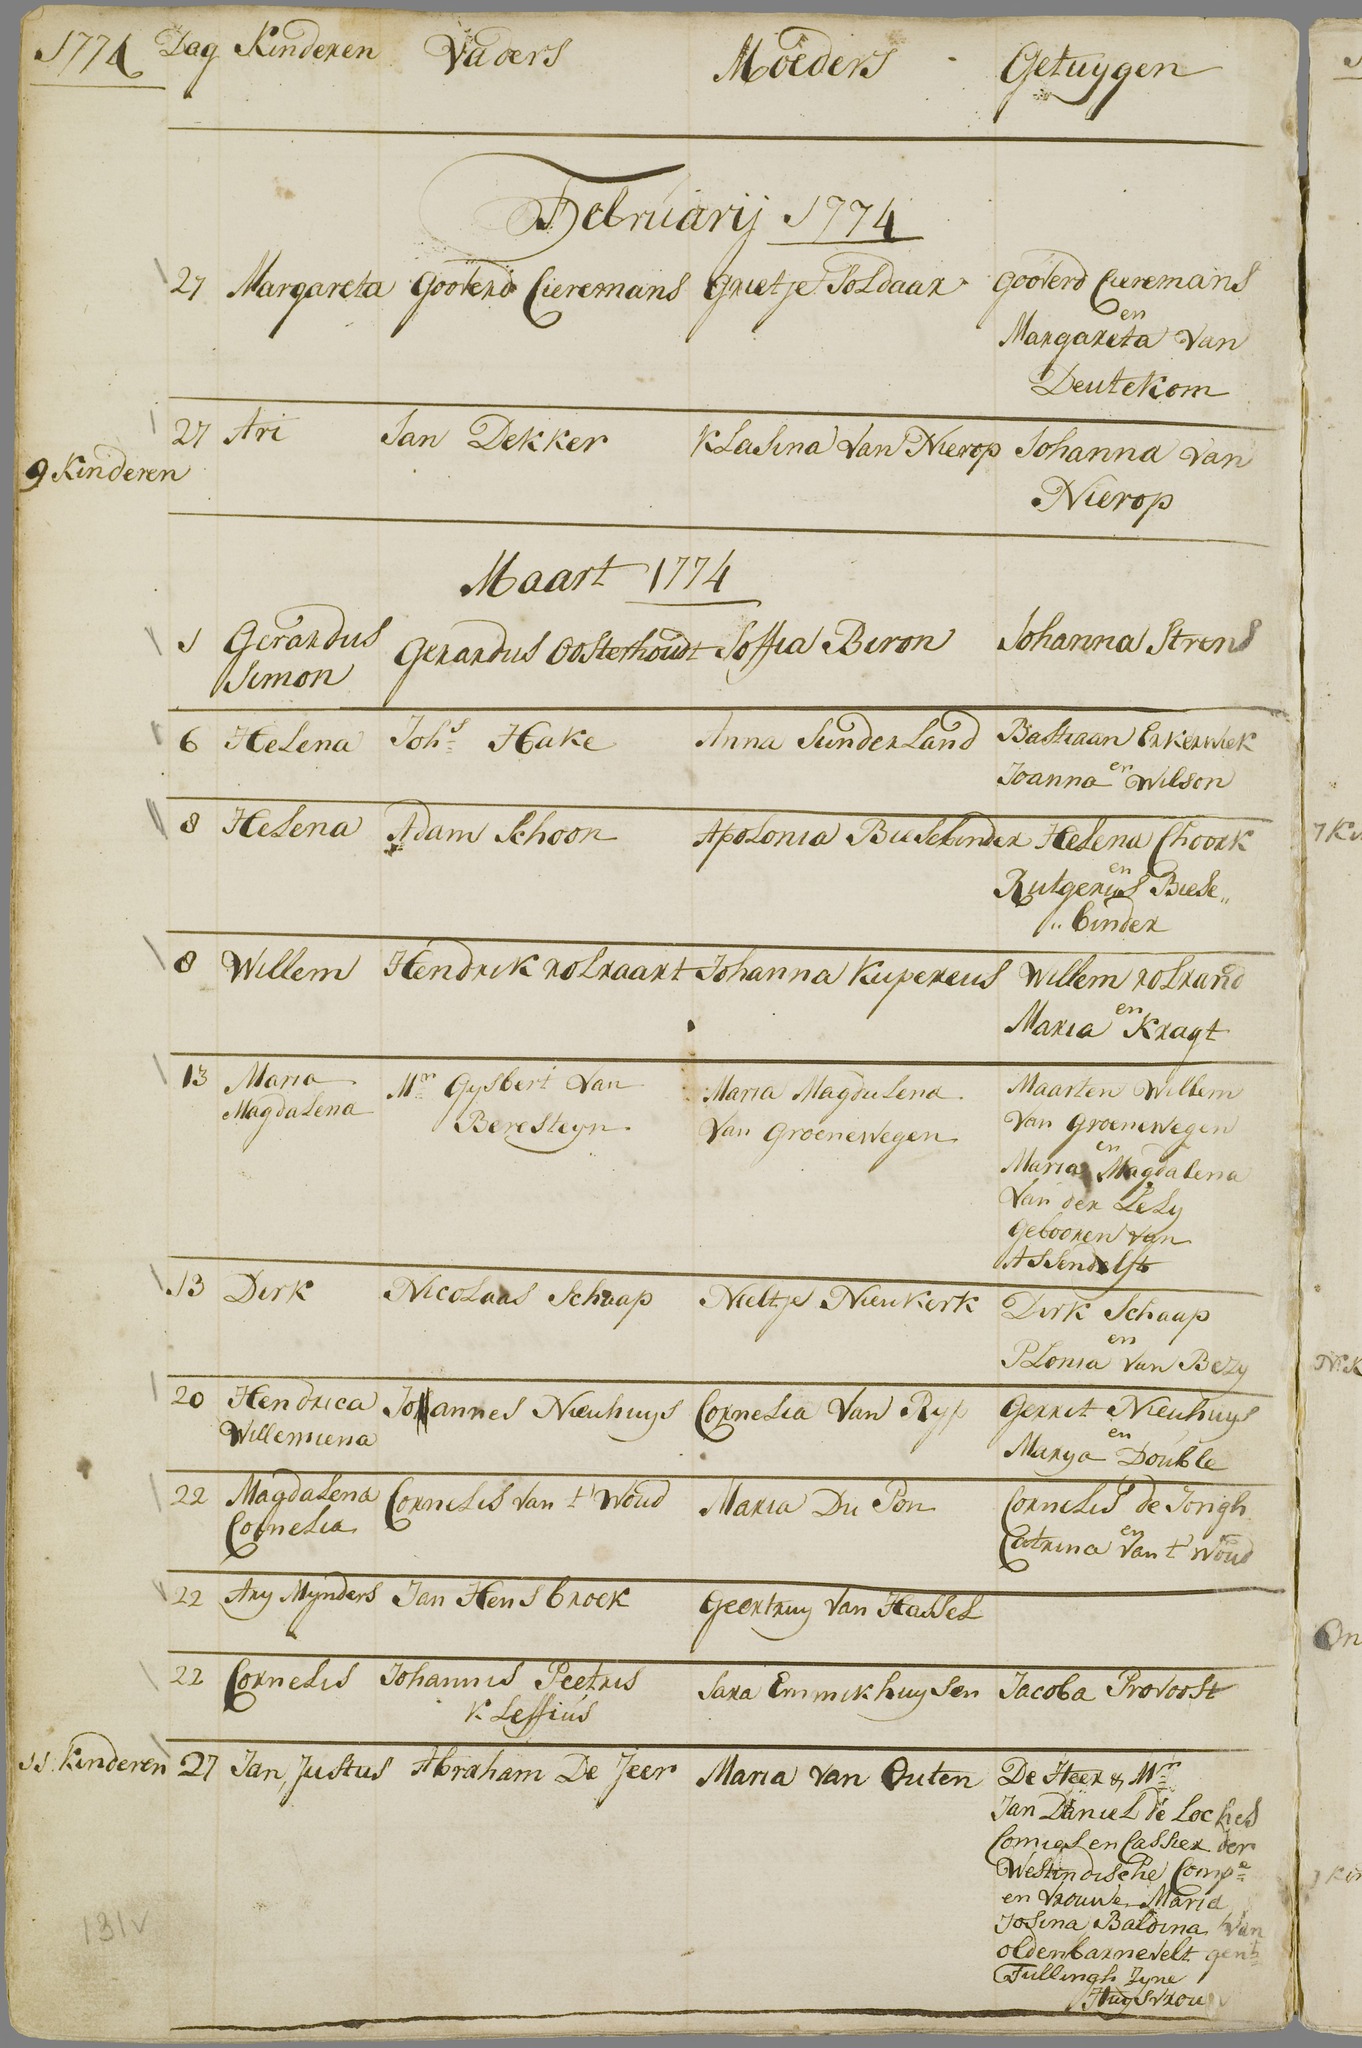 1774 Dag Kinderen Vaders Moeders Getuygen
Februarij 1774
27 Margareta Gooverd Cieremans Grietje Soldaar Gooverd Cieremans
en
Margareta Van
Deutekom
27 Ari Jan Dekker Klasina Van Nierop Johanna Van
9 Kinderen
Nierop
Maart 1774
1 Gerardus Gerardus Oosterhoudt Soffia Biron Johanna Strens
Simon
6 Helena Johs Hake Anna Sunderland Bastiaan Erkerwiek
en
Joanna Wilson
8 Helena Adam Schoon Apolonia Biesebinder Helena Choork
en
Rutgerus Biese„
„binder
8 Willem Hendrik rolraart Johanna Kupereus Willem rolrand
en
Maria Kragt
13 Maria Mr Gysbert Van Maria Magdalena Maarten Willem
Magdalena Beresteyn Van Groenewegen Van Groenewegen
en
Maria Magdalena
Van der Lely
gebooren van
Assendelft
13 Dirk Nicolaas Schaap Neeltje Nieukerk Dirk Schaap
en
Plonia Van Bezy
20 Hendrica Johannes Nieuhuys Cornelia Van Ryp Gerrit Nieuhuys
en
Willemiena Marya Double
22 Magdalena Cornelis Van t' Woud Maria Du Pon Cornelis de Jongh
en
Cornelia Catrina Van t' Woud
22 Ary Mynders Jan Hensbroek Geertruy Van Hassel
22 Cornelis Johannis Peetris Sara Emmikhuysen Jacoba Provoost
Kleffius
11 Kinderen 27 Jan Justus Abraham De Jeer Maria Van Outen De Heer & Mr
Jan Daniel de Loches
Comies en Cassier der
Westindische Compe
en Vrouwe Maria
Josina Baldina Van
oldenbarnevelt gent
Tullingh Zyne
Huysvrou
131v